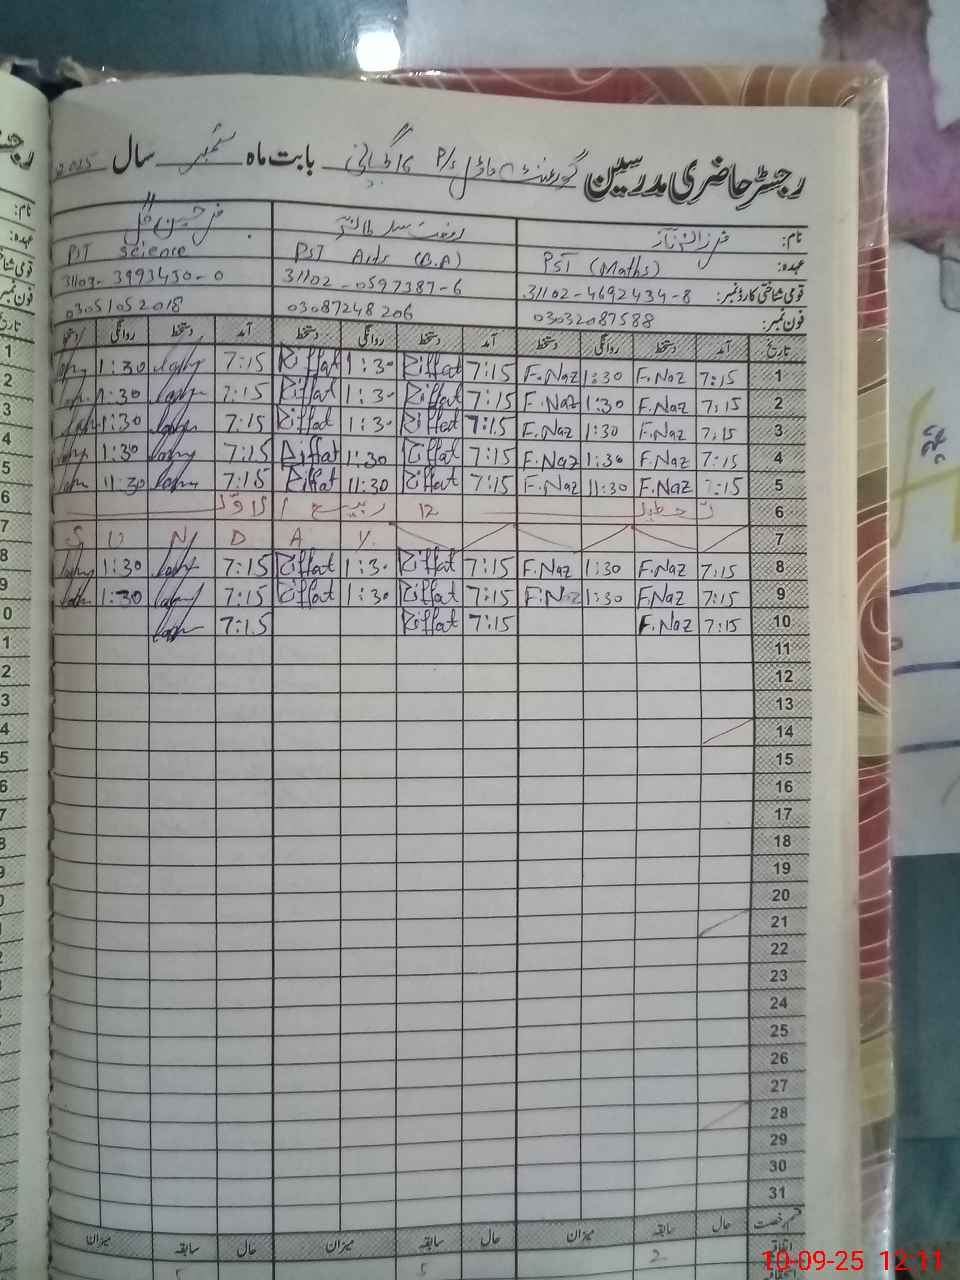 رجسٹر حاضری مدرسین گورنمنٹ ماڈل P/s بابت ماہ ستمبر سال 2025
نام: فرزانہ ناز
عہدہ: PST (Maths) PST Arts (B.A) PST Science
قومی شناختی کارڈ نمبر: 31102-4692434-8 31102-0597387-6 31103-3993430-0
فون نمبر: 03032087588 03087248206 03051052018
تاریخ آمد دستخط روانگی دستخط آمد دستخط روانگی دستخط آمد دستخط روانگی دستخط
1 7:15 F.Naz 1:30 F.Naz 7:15 Riffat 1:30 Riffat 7:15 1:30
2 7:15 F.Naz 1:30 F.Naz 7:15 Riffat 1:30 Riffat 7:15 1:30
3 7:15 F.Naz 1:30 F.Naz 7:15 Riffat 1:30 Riffat 7:15 1:30
4 7:15 F.Naz 1:30 F.Naz 7:15 Riffat 1:30 Riffat 7:15 1:30
5 7:15 F.Naz 11:30 F.Naz 7:15 Riffat 11:30 Riffat 7:15 11:30
6 تعطیل 12 ربیع الاول
7 S U N D A Y
8 7:15 F.Naz 1:30 F.Naz 7:15 Riffat 1:30 Riffat 7:15 1:30
9 7:15 F.Naz 1:30 F.Naz 7:15 Riffat 1:30 Riffat 7:15 1:30
10 7:15 F.Naz 7:15 Riffat 7:15
11
12
13
14
15
16
17
18
19
20
21
22
23
24
25
26
27
28
29
30
31
قسم رخصت حال سابقہ میزان حال سابقہ میزان حال سابقہ میزان
اتفاقیہ 2 5 5
10-09-25 12:11